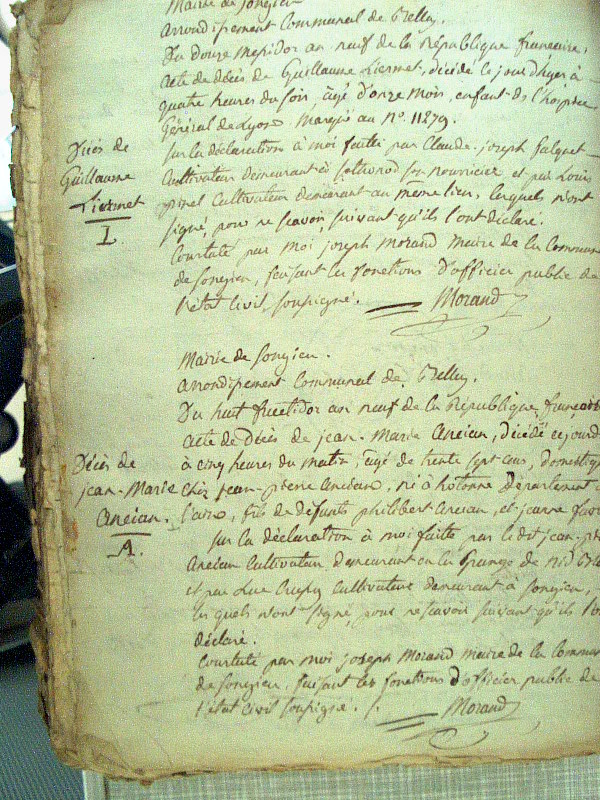 Mairie de Songieu
arrondissement Communal de Belley.
Du douze Messidor an neuf de la République francaise,
acte de Décès de Guillaume Liermet, décédé le jour d'hyer à
quatre heures du soir, âgé d'onze mois, enfant de l'hospice
Général de Lyon Marqué au N°. 11279.
Décès de
Guillaume
Liermet
1.
Sur la déclaration à moi faite par Claude-joseph
Cultivateur demeurant à Sothonod son nourricier et par Louis
pinet Cultivateur demeurant au meme lieu, lesquels n'ont
signé pour ne scavoir, suivant qu'ils l'ont déclaré.
Constaté par Moi joseph Morand Maire de la Commune
de Songieu, faisant les fonctions d'officier public de
l'état Civil soussigné. Morand
Mairie de Songieu.
arrondissement Communal de Belley.
Du huit fructidor an neuf de la République, francaise
acte de Décès de jean-Marie Ancian, décédé cejourd
Décès de
jean-Marie
Ancian.
à cinq heures du matin, âgé de trente sept ans, domestique
chez jean-pierre Ancian, né à hotonne Département
l'ain, fils de défunts philibert Ancian, et jeanne
sur la déclaration à moi faite par ledit jean-pi
Ancian Cultivateur demeurant en la Grange de
et par Luc Cultivateur demeurant à Songieu,
lesquels n'ont signé, pour ne scavoir suivant qu'ils l'o
déclaré.
Constaté par moi joseph Morand Maire de la Commun
de Songieu, faisant les fonctions d'officier public de
l'état civil soussigné. Morand